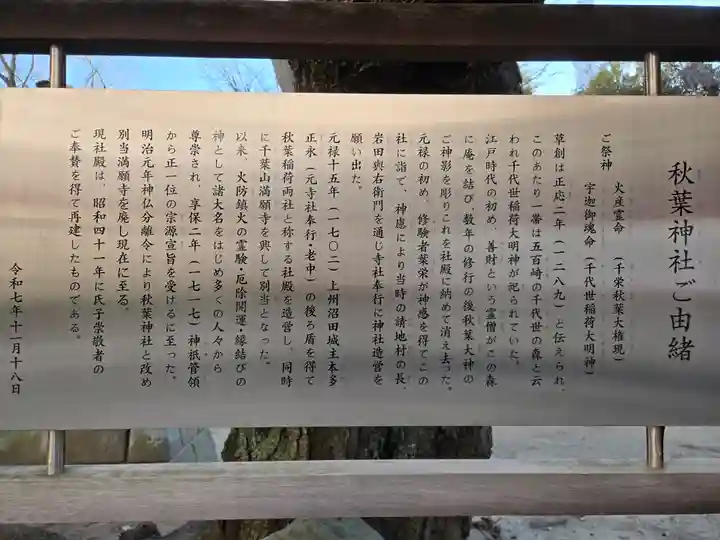 秋葉神社ご由緒
ご祭神
火産霊命 (千栄秋葉大権現)
宇迦御魂命 (千代世稲荷大明神)
草創は正応二年 (一二八九) と伝えられ、
このあたり一帯は五百崎の千代世の森と云
われ千代世稲荷大明神が祀られていた。
江戸時代の初め、善財という霊僧がこの森
に庵を結び、数年の修行の後秋葉大神の
ご神影を彫りこれを社殿に納めて消え去った。
元禄の初め、修験者葉栄が神感を得てこの
社に詣で、神慮により当時の請地村の長、
岩田與右衛門を通じ寺社奉行に神社造営を
願い出た。
元禄十五年 (一七〇二) 上州沼田城主本多
正永 (元寺社奉行・老中) の後ろ盾を得て
秋葉稲荷両社と称する社殿を造営し、同時
に千葉山満願寺を興して別当となった。
以来、火防鎮火の霊験・厄除開運・縁結びの
神として諸大名をはじめ多くの人々から
尊崇され、享保二年 (一七一七) 神祇管領
から正一位の宗源宣旨を受けるに至った。
明治元年神仏分離令により秋葉神社と改め
別当満願寺を廃し現在に至る。
現社殿は、昭和四十一年に氏子崇敬者の
ご奉賛を得て再建したものである。
令和七年十一月十八日